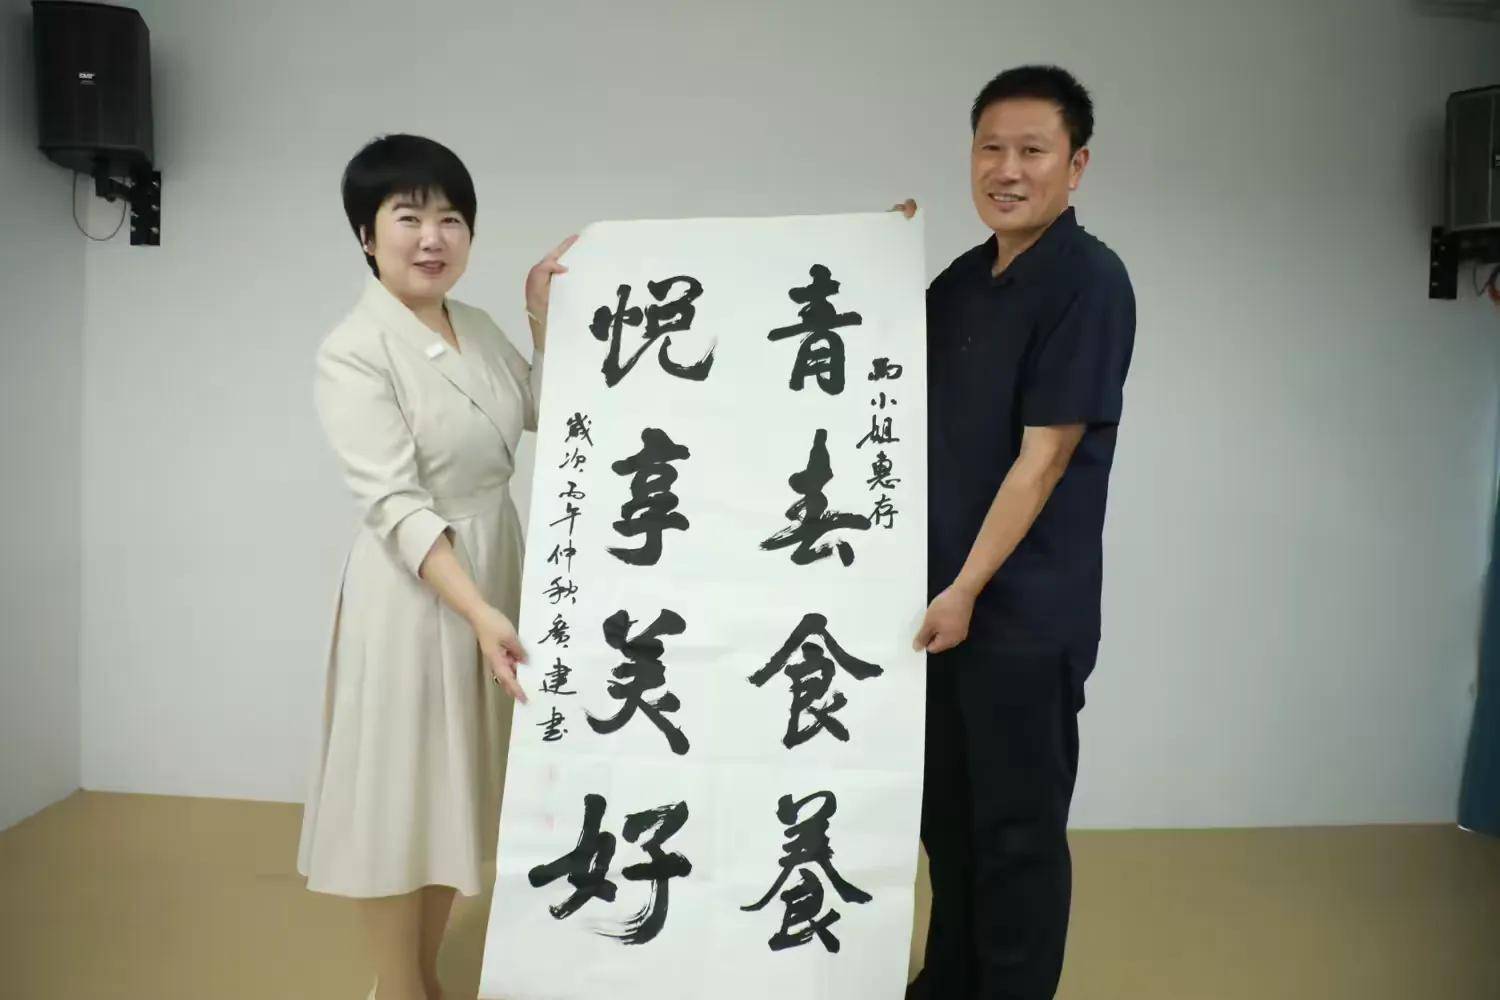 雨小姐惠存
青春食養
悦享美好
歲次丙午仲秋廣建書